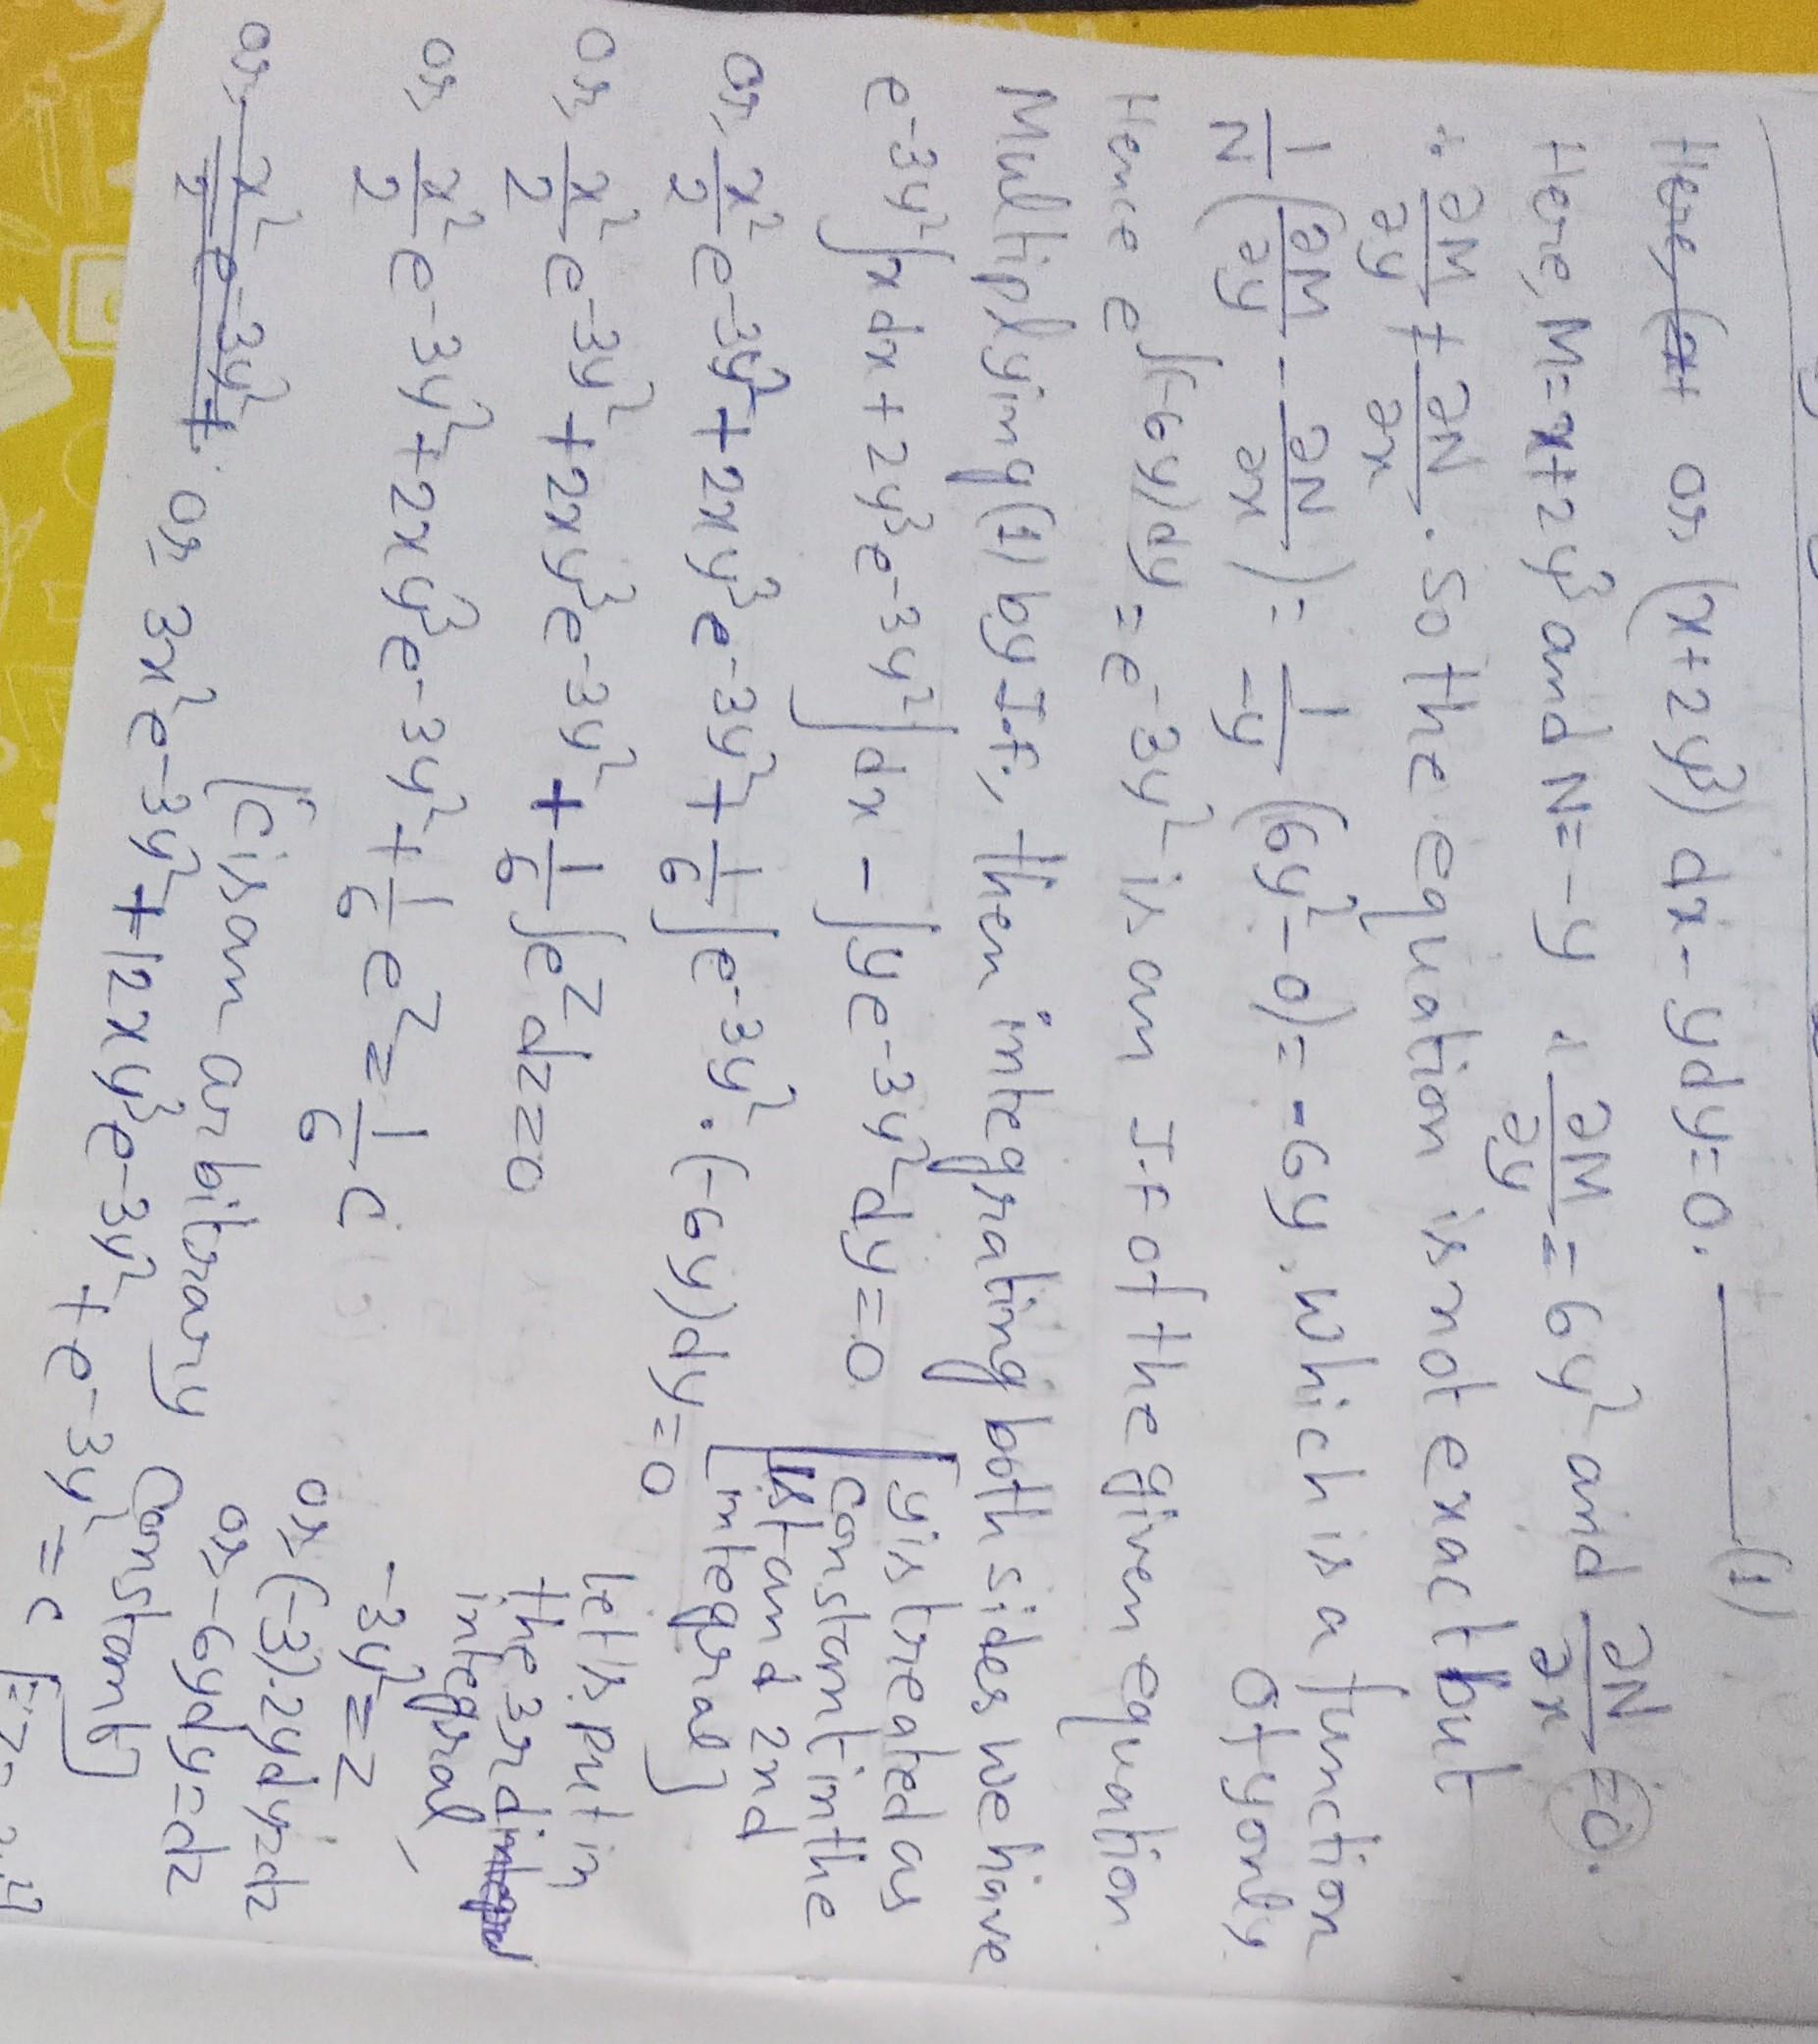 Here, (x+ or (x+2y³) dx - ydy=0. ——— (1)
Here, M=x+2y³ and N=-y ∴ ∂M/∂y = 6y² and ∂N/∂x =0.
∴ ∂M/∂y ≠ ∂N/∂x. So the equation is not exact but
1/N (∂M/∂y - ∂N/∂x) = 1/-y (6y²-0) = -6y. Which is a function of y only.
Hence e^∫(-6y)dy = e^-3y² is an I.F of the given equation.
Multiplying (1) by I.F., then integrating both sides we have
e^-3y² ∫x dx + 2y³e^-3y² ∫dx - ∫ye^-3y² dy=0 [y is treated as constant in the 1st and 2nd integral]
or, x²/2 e^-3y² + 2xy³e^-3y² + 1/6 ∫e^-3y².(-6y)dy=0
or, x²/2 e^-3y² + 2xy³e^-3y² + 1/6 ∫e^z dz=0
let is put in
the 3rd
integral,
-3y²=z
or (-3).2ydy=dz
or, -6ydy=dz
or, x²/2 e^-3y² + 2xy³e^-3y² + 1/6 e^z = 1/6 c
[c is an arbitrary constant]
or, x²/2 e^-3y² + or, 3x²e^-3y² + 12xy³e^-3y² + e^-3y² = c